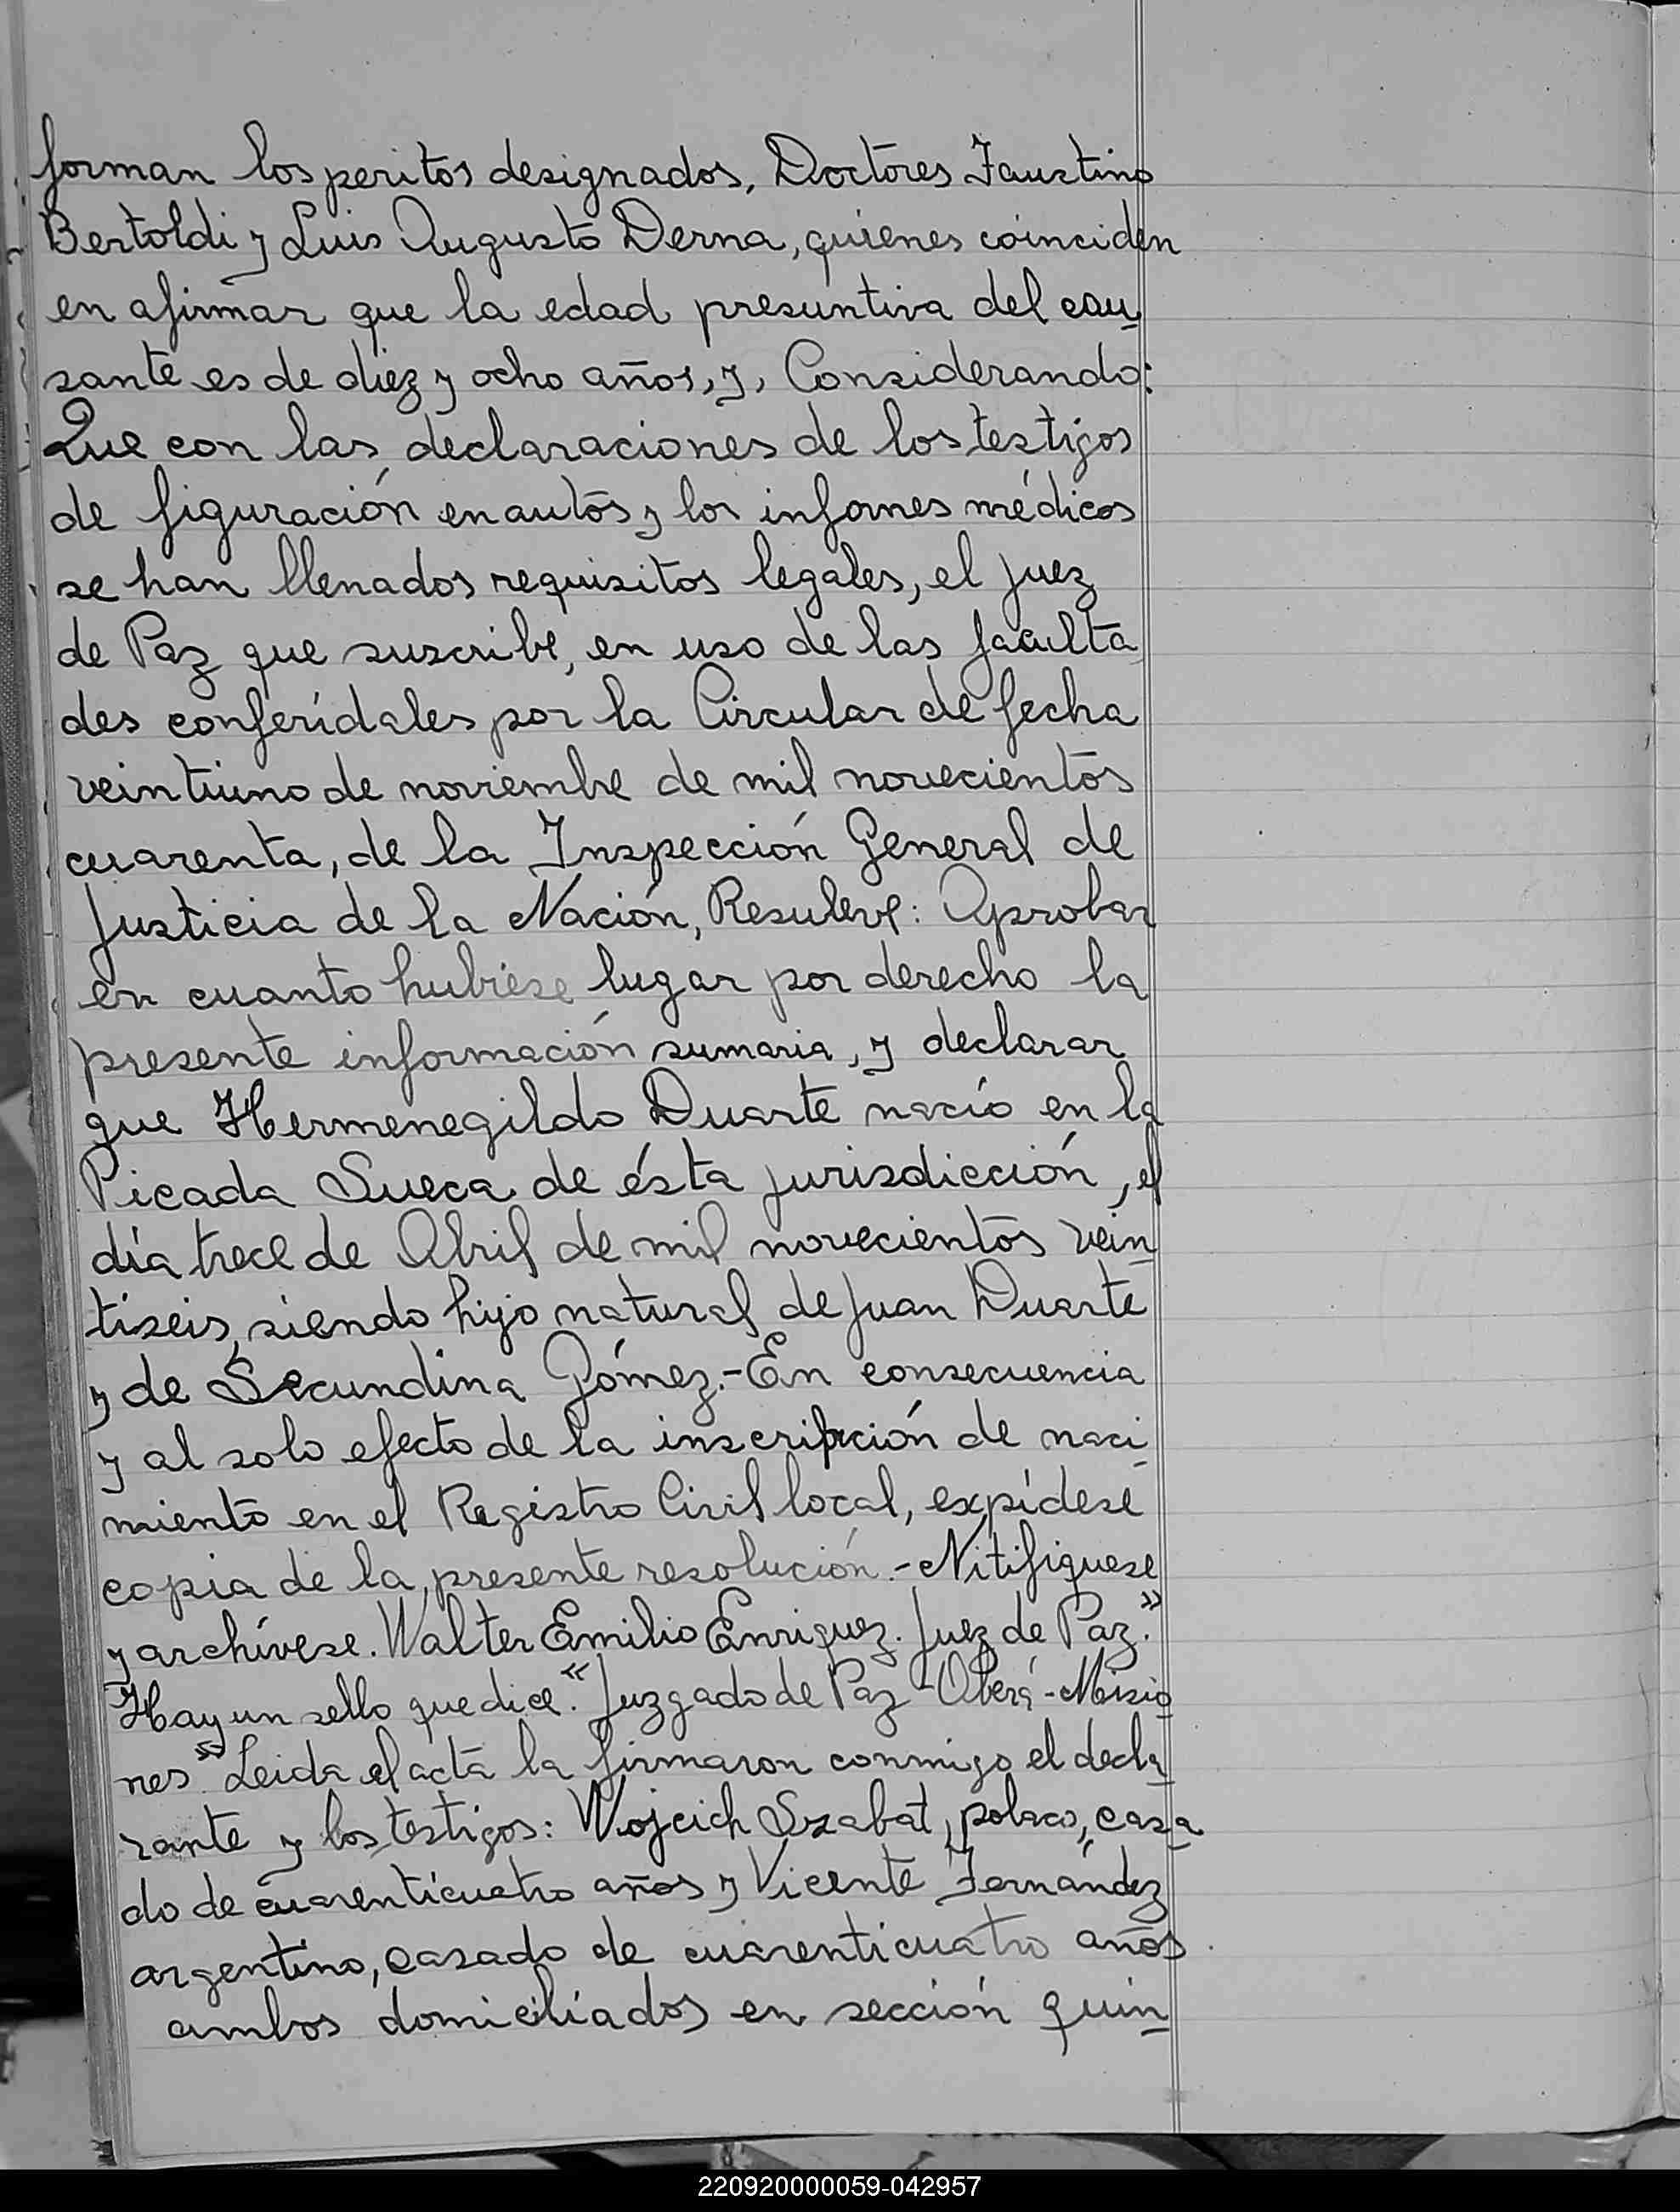 forman los peritos designados, Doctores Faustino
Bertoldi y Luis Augusto Derna, quienes coinciden
en afirmar que la edad presuntiva del cau
sante es de diez y ocho años, y, Considerando:
Que con las declaraciones de los testigos
de figuración en autos y los infomes médicos
se han llenados requisitos legales, el juez
de Paz que suscribe, en uso de las faculta
des conferídales por la Circular de fecha
veintiuno de noviembre de mil novecientos
cuarenta, de la Inspección General de
Justicia de la Nación, Resuleve: Aprobar
en cuanto hubiese lugar por derecho la
presente información sumaria, y declarar
que Hermenegildo Duarte nacío en la
Picada Sueca de ésta jurisdicción, el
día trece de Abril de mil novecientos vein
tiseis, siendo hijo natural de Juan Duarte
y de Secundina Gómez.- En consecuencia
y al solo efecto de la inscripción de naci
miento en el Registro Civil local, expídese
copia de la presente resolución.- Nitifiquese
y archívese. Walter Emilio Enriquez. Juez de Paz."
Hay un sello que dice: "Juzgado de Paz - Oberá - Misio
nes". Leida el acta la firmaron conmigo el decla
rante y los testigos: Wojcich Szabat, polaco, casa
do de cuarenticuatro años y Vicente Fernández
argentino, casado de cuarenticuatro años
ambos domiciliados en sección quin
220920000059-042957